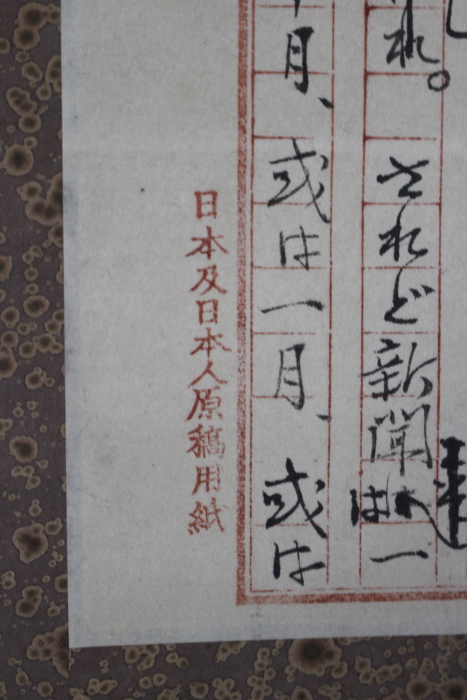 れ。 されど新聞は一
月、或は一月、或は
日本及日本人原稿用紙